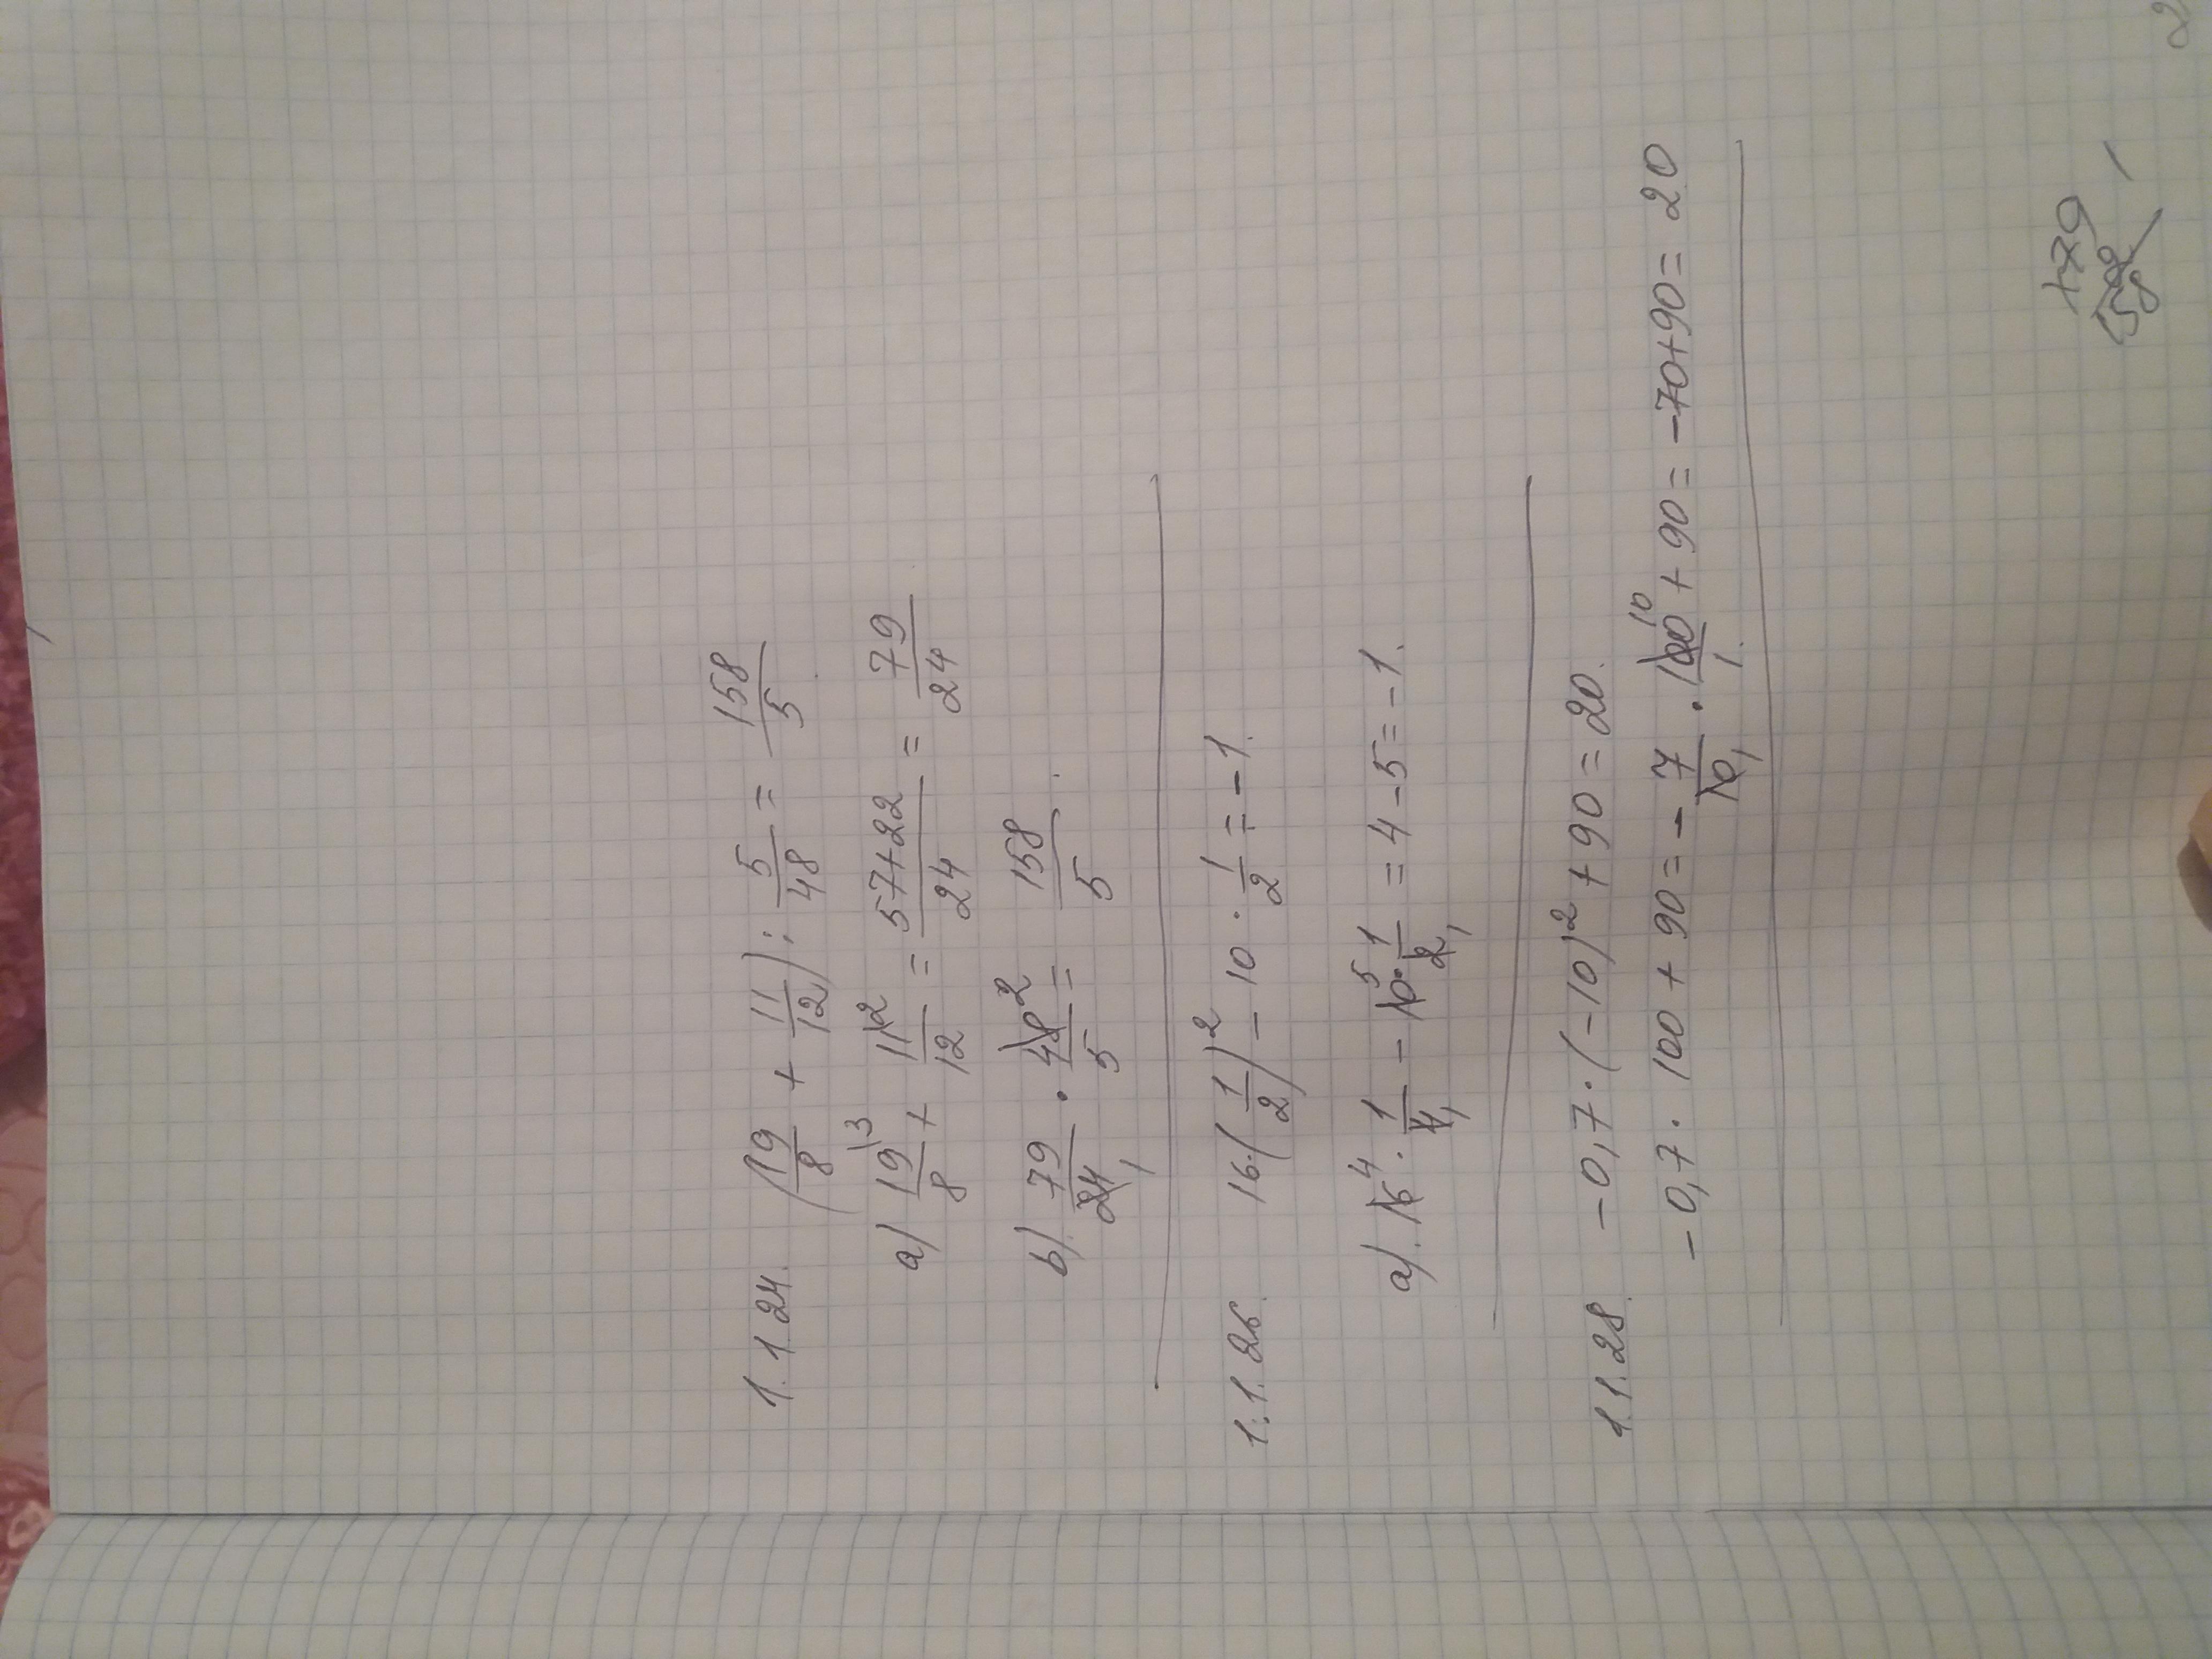 1.1.24. (19/8 + 11/12) : 5/48 = 158/5
a) 19\3/8 + 11\2/12 = 57+22/24 = 79/24
b). 79/24 1 · 48 2/5 = 158/5.
1.1.26. 16·(1/2)² - 10 · 1/2 = -1.
a). 16 4 · 1/4 1 - 10 5 · 1/2 1 = 4 - 5 = -1.
1.1.28. -0,7·(-10)² + 90 = 20.
-0,7 · 100 + 90 = - 7/10 1 · 100 10/1 + 90 = -70+90 = 20
79
158
2